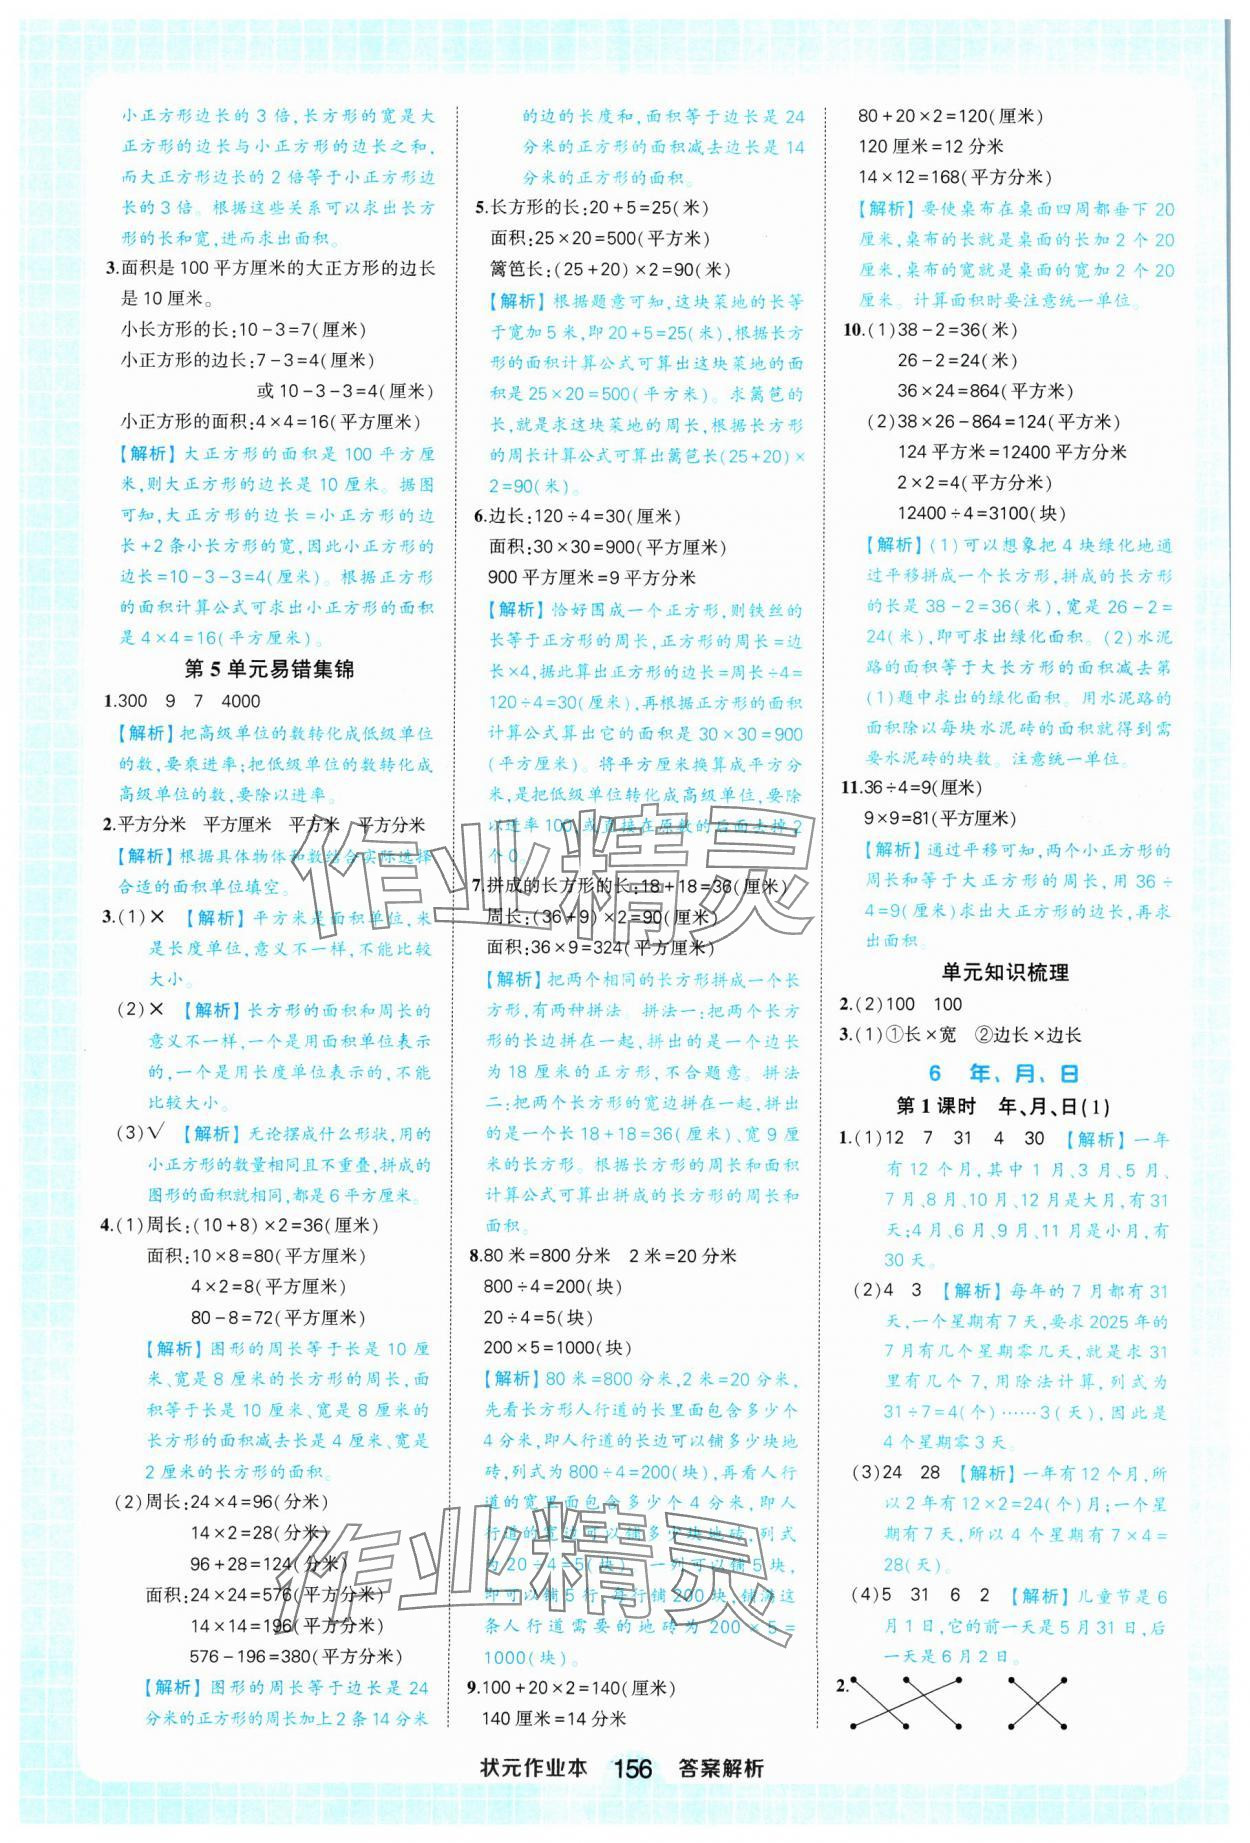 小正方形边长的3倍,长方形的宽是大
正方形的边长与小正方形的边长之和,
而大正方形边长的2倍等于小正方形边
长的3倍。根据这些关系可以求出长方
形的长和宽,进而求出面积。
3.面积是100平方厘米的大正方形的边长
是10厘米。
小长方形的长:10-3=7(厘米)
小正方形的边长:7-3=4(厘米)
或10-3-3=4(厘米)
小正方形的面积:4×4=16(平方厘米)
【解析】大正方形的面积是100平方厘
米,则大正方形的边长是10厘米。据图
可知,大正方形的边长=小正方形的边
长+2条小长方形的宽,因此小正方形的
边长=10-3-3=4(厘米)。根据正方形
的面积计算公式可求出小正方形的面积
是4×4=16(平方厘米)。
第5单元易错集锦
1.300 9 7 4000
【解析】把高级单位的数转化成低级单位
的数,要乘进率;把低级单位的数转化成
高级单位的数,要除以进率。
2.平方分米 平方厘米 平方米 平方分米
【解析】根据具体物体和数结合实际选择
合适的面积单位填空。
3.(1)× 【解析】平方米是面积单位,米
是长度单位,意义不一样,不能比较
大小。
(2)× 【解析】长方形的面积和周长的
意义不一样,一个是用面积单位表示
的,一个是用长度单位表示的,不能
比较大小。
(3)√ 【解析】无论摆成什么形状,用的
小正方形的数量相同且不重叠,拼成的
图形的面积就相同,都是6平方厘米。
4.(1)周长:(10+8)×2=36(厘米)
面积:10×8=80(平方厘米)
4×2=8(平方厘米)
80-8=72(平方厘米)
【解析】图形的周长等于长是10厘
米、宽是8厘米的长方形的周长,面
积等于长是10厘米、宽是8厘米的
长方形的面积减去长是4厘米、宽是
2厘米的长方形的面积。
(2)周长:24×4=96(分米)
14×2=28(分米)
96+28=124(分米)
面积:24×24=576(平方分米)
14×14=196(平方分米)
576-196=380(平方分米)
【解析】图形的周长等于边长是24
分米的正方形的周长加上2条14分米
的边的长度和,面积等于边长是24
分米的正方形的面积减去边长是14
分米的正方形的面积。
5.长方形的长:20+5=25(米)
面积:25×20=500(平方米)
篱笆长:(25+20)×2=90(米)
【解析】根据题意可知,这块菜地的长等
于宽加5米,即20+5=25(米),根据长方
形的面积计算公式可算出这块菜地的面
积是25×20=500(平方米)。求篱笆的
长,就是求这块菜地的周长,根据长方形
的周长计算公式可算出篱笆长(25+20)×
2=90(米)。
6.边长:120÷4=30(厘米)
面积:30×30=900(平方厘米)
900平方厘米=9平方分米
【解析】恰好围成一个正方形,则铁丝的
长等于正方形的周长,正方形的周长=边
长×4,据此算出正方形的边长=周长÷4=
120÷4=30(厘米),再根据正方形的面积
计算公式算出它的面积是30×30=900
(平方厘米)。将平方厘米换算成平方分
米,是把低级单位转化成高级单位,要除
以进率100,或直接在原数的后面去掉2
个0。
7.拼成的长方形的长:18+18=36(厘米)
周长:(36+9)×2=90(厘米)
面积:36×9=324(平方厘米)
【解析】把两个相同的长方形拼成一个长
方形,有两种拼法。拼法一:把两个长方
形的长边拼在一起,拼出的是一个边长
为18厘米的正方形,不合题意。拼法
二:把两个长方形的宽边拼在一起,拼出
的是一个长18+18=36(厘米)、宽9厘
米的长方形。根据长方形的周长和面积
计算公式可算出拼成的长方形的周长和
面积。
8.80米=800分米 2米=20分米
800÷4=200(块)
20÷4=5(块)
200×5=1000(块)
【解析】80米=800分米,2米=20分米。
先看长方形人行道的长里面包含多少个
4分米,即人行道的长边可以铺多少块地
砖,列式为800÷4=200(块),再看人行
道的宽里面包含多少个4分米,即人
行道的宽边可以铺多少块地砖,列式
为20÷4=5(块)。一列可以铺5块,
即可以铺5行,每行铺200块,铺满这
条人行道需要的地砖为200×5=
1000(块)。
9.100+20×2=140(厘米)
140厘米=14分米
80+20×2=120(厘米)
120厘米=12分米
14×12=168(平方分米)
【解析】要使桌布在桌面四周都垂下20
厘米,桌布的长就是桌面的长加2个20
厘米,桌布的宽就是桌面的宽加2个20
厘米。计算面积时要注意统一单位。
10.(1)38-2=36(米)
26-2=24(米)
36×24=864(平方米)
(2)38×26-864=124(平方米)
124平方米=12400平方分米
2×2=4(平方分米)
12400÷4=3100(块)
【解析】(1)可以想象把4块绿化地通
过平移拼成一个长方形,拼成的长方形
的长是38-2=36(米),宽是26-2=
24(米),即可求出绿化面积。(2)水泥
路的面积等于大长方形的面积减去第
(1)题中求出的绿化面积。用水泥路的
面积除以每块水泥砖的面积就得到需
要水泥砖的块数。注意统一单位。
11.36÷4=9(厘米)
9×9=81(平方厘米)
【解析】通过平移可知,两个小正方形的
周长和等于大正方形的周长,用36÷
4=9(厘米)求出大正方形的边长,再求
出面积。
单元知识梳理
2.(2)100 100
3.(1)①长×宽 ②边长×边长
6 年、月、日
第1课时 年、月、日(1)
1.(1)12 7 31 4 30 【解析】一年
有12个月,其中1月、3月、5月、
7月、8月、10月、12月是大月,有31
天;4月、6月、9月、11月是小月,有
30天。
(2)4 3 【解析】每年的7月都有31
天,一个星期有7天,要求2025年的
7月有几个星期零几天,就是求31
里有几个7,用除法计算,列式为
31÷7=4(个)……3(天),因此是
4个星期零3天。
(3)24 28 【解析】一年有12个月,所
以2年有12×2=24(个)月;一个星
期有7天,所以4个星期有7×4=
28(天)。
(4)5 31 6 2 【解析】儿童节是6
月1日,它的前一天是5月31日,后
一天是6月2日。
2.
作业精灵
作业精灵
状元作业本 156 答案解析